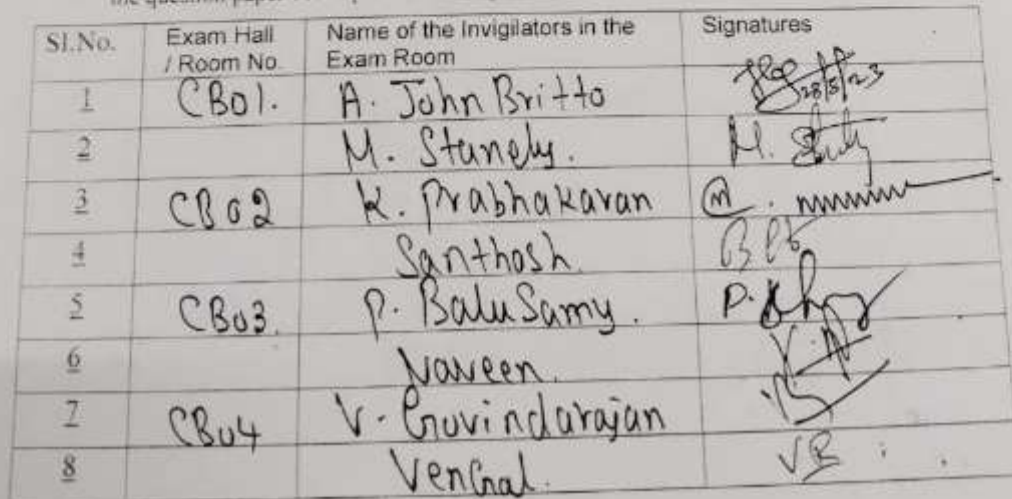 the question paper
Sl.No. Exam Hall / Room No. Name of the Invigilators in the Exam Room Signatures
1 CB01. A. John Britto 28/8/23
2 M. Stanely. M.
3 CB02 K. Prabhakaran
4 Santhosh.
5 CB03. P. BaluSamy. P.
6 Naveen.
7 CB04 V. Govindarajan
8 VR